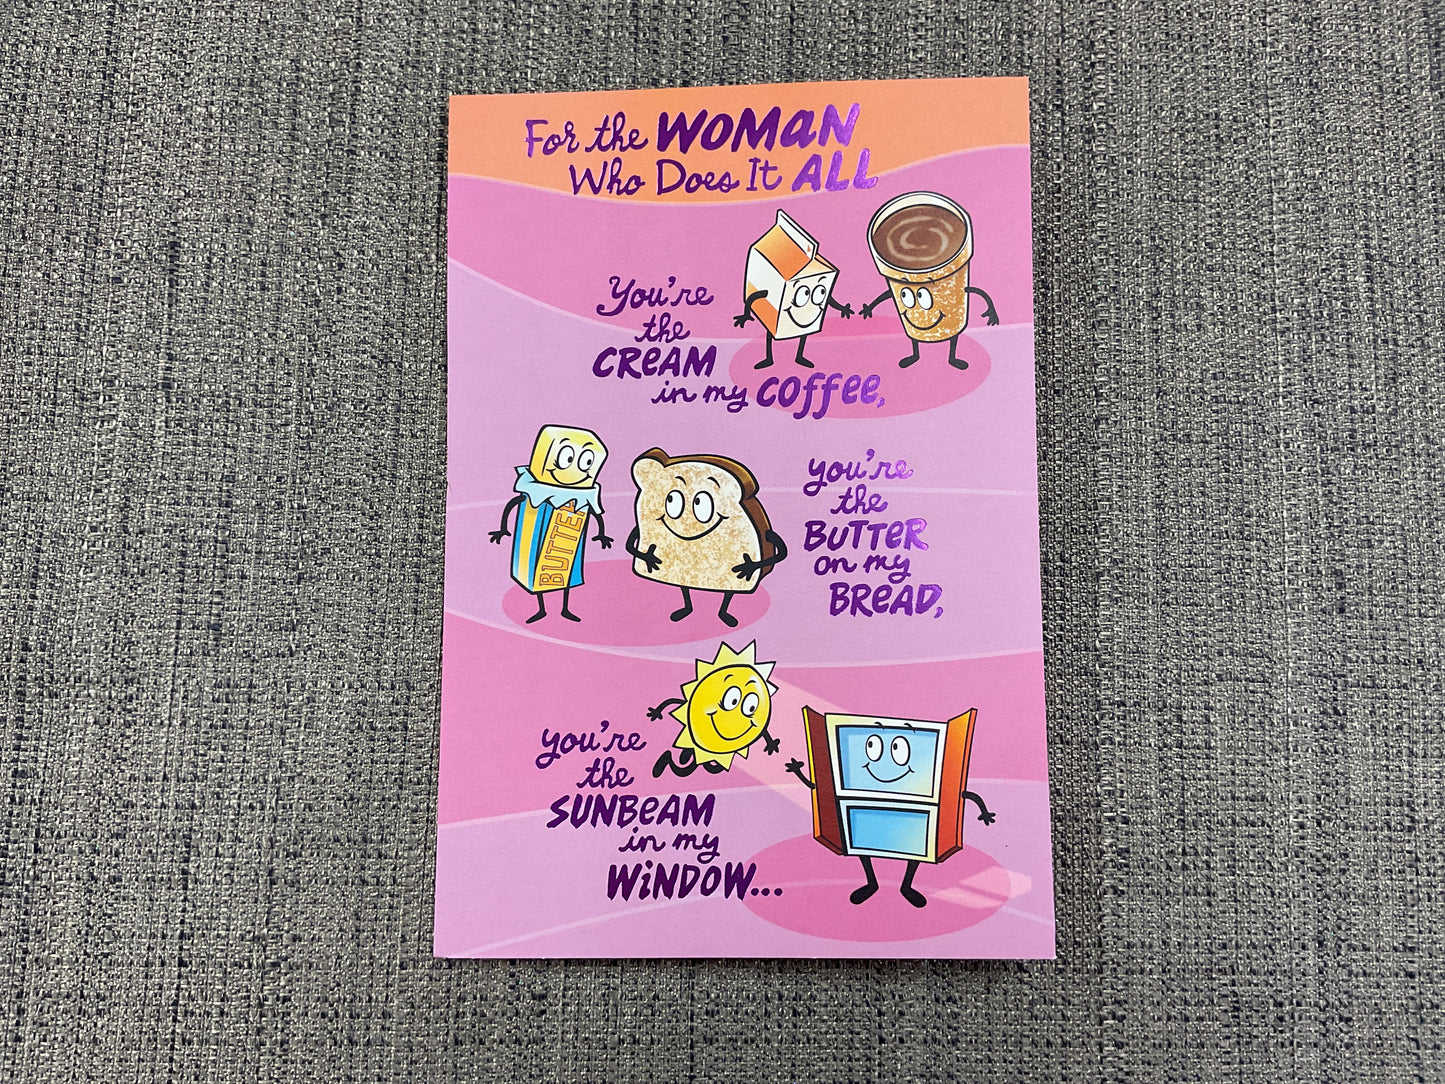 For the WOMAN
Who Does It ALL
You're
the
CREAM
in my COFFEE,
BUTTE
you're
the
BUTTER
on my
BREAD,
you're
the
SUNBEAM
in my
WINDOW...